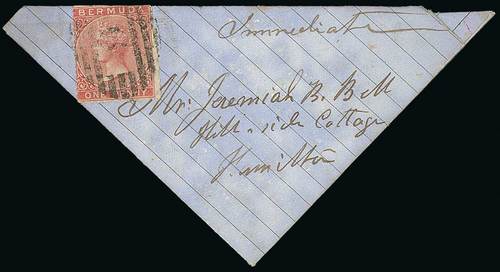 BERMUDA
ONE PENNY
Immediate
Mr. Jeremiah B. Bell
Hill-side Cottage
Hamilton